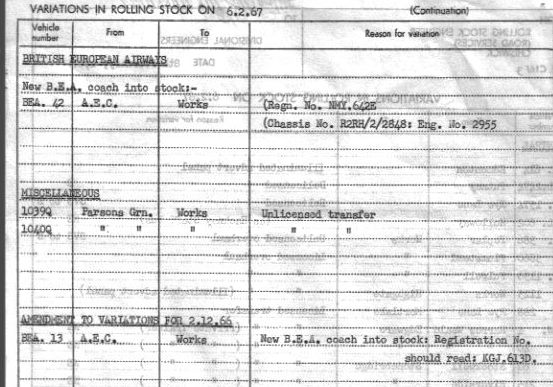 VARIATIONS IN ROLLING STOCK ON 6.2.67 (Continuation)
Vehicle number From To Reason for variation
BRITISH EUROPEAN AIRWAYS
New B.E.A. coach into stock:-
BEA. 42 A.E.C. Works (Regn. No. NMY.642E
(Chassis No. R2RH/2/2848: Eng. No. 2955
MISCELLANEOUS
1039Q Parsons Grn. Works Unlicensed transfer
1040Q " " " " "
AMENDMENT TO VARIATIONS FOR 2.12.66
BEA. 13 A.E.C. Works New B.E.A. coach into stock: Registration No.
should read: KGJ.613D.